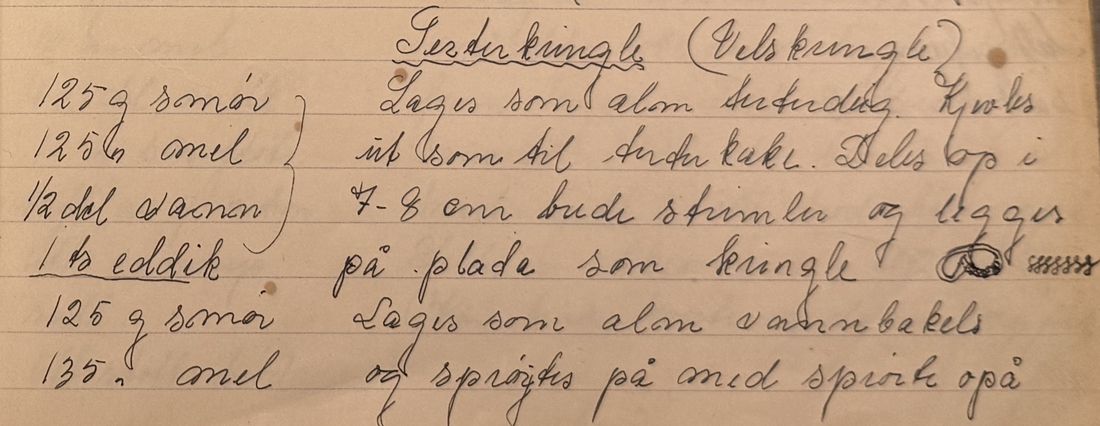 Terterkringle (Velskringle)
125 g smør Lages som alm terterdeig. Kjevles
125 " mel ut som til terterkake. Deles op i
1/2 del vann 7-8 cm brede strimler og legges
1 ts eddik på plada som kringle
125 g smør Lages som alm vannbakels
135 " mel og sprøjtes på med sprøite opå